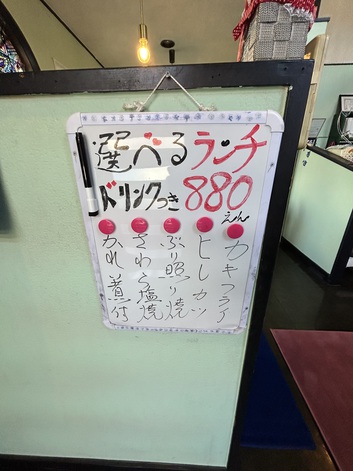 選べるランチ
ドリンクつき880えん
カキフライ
ヒレカツ
ぶり照り焼
さわら塩焼
かれ煮付